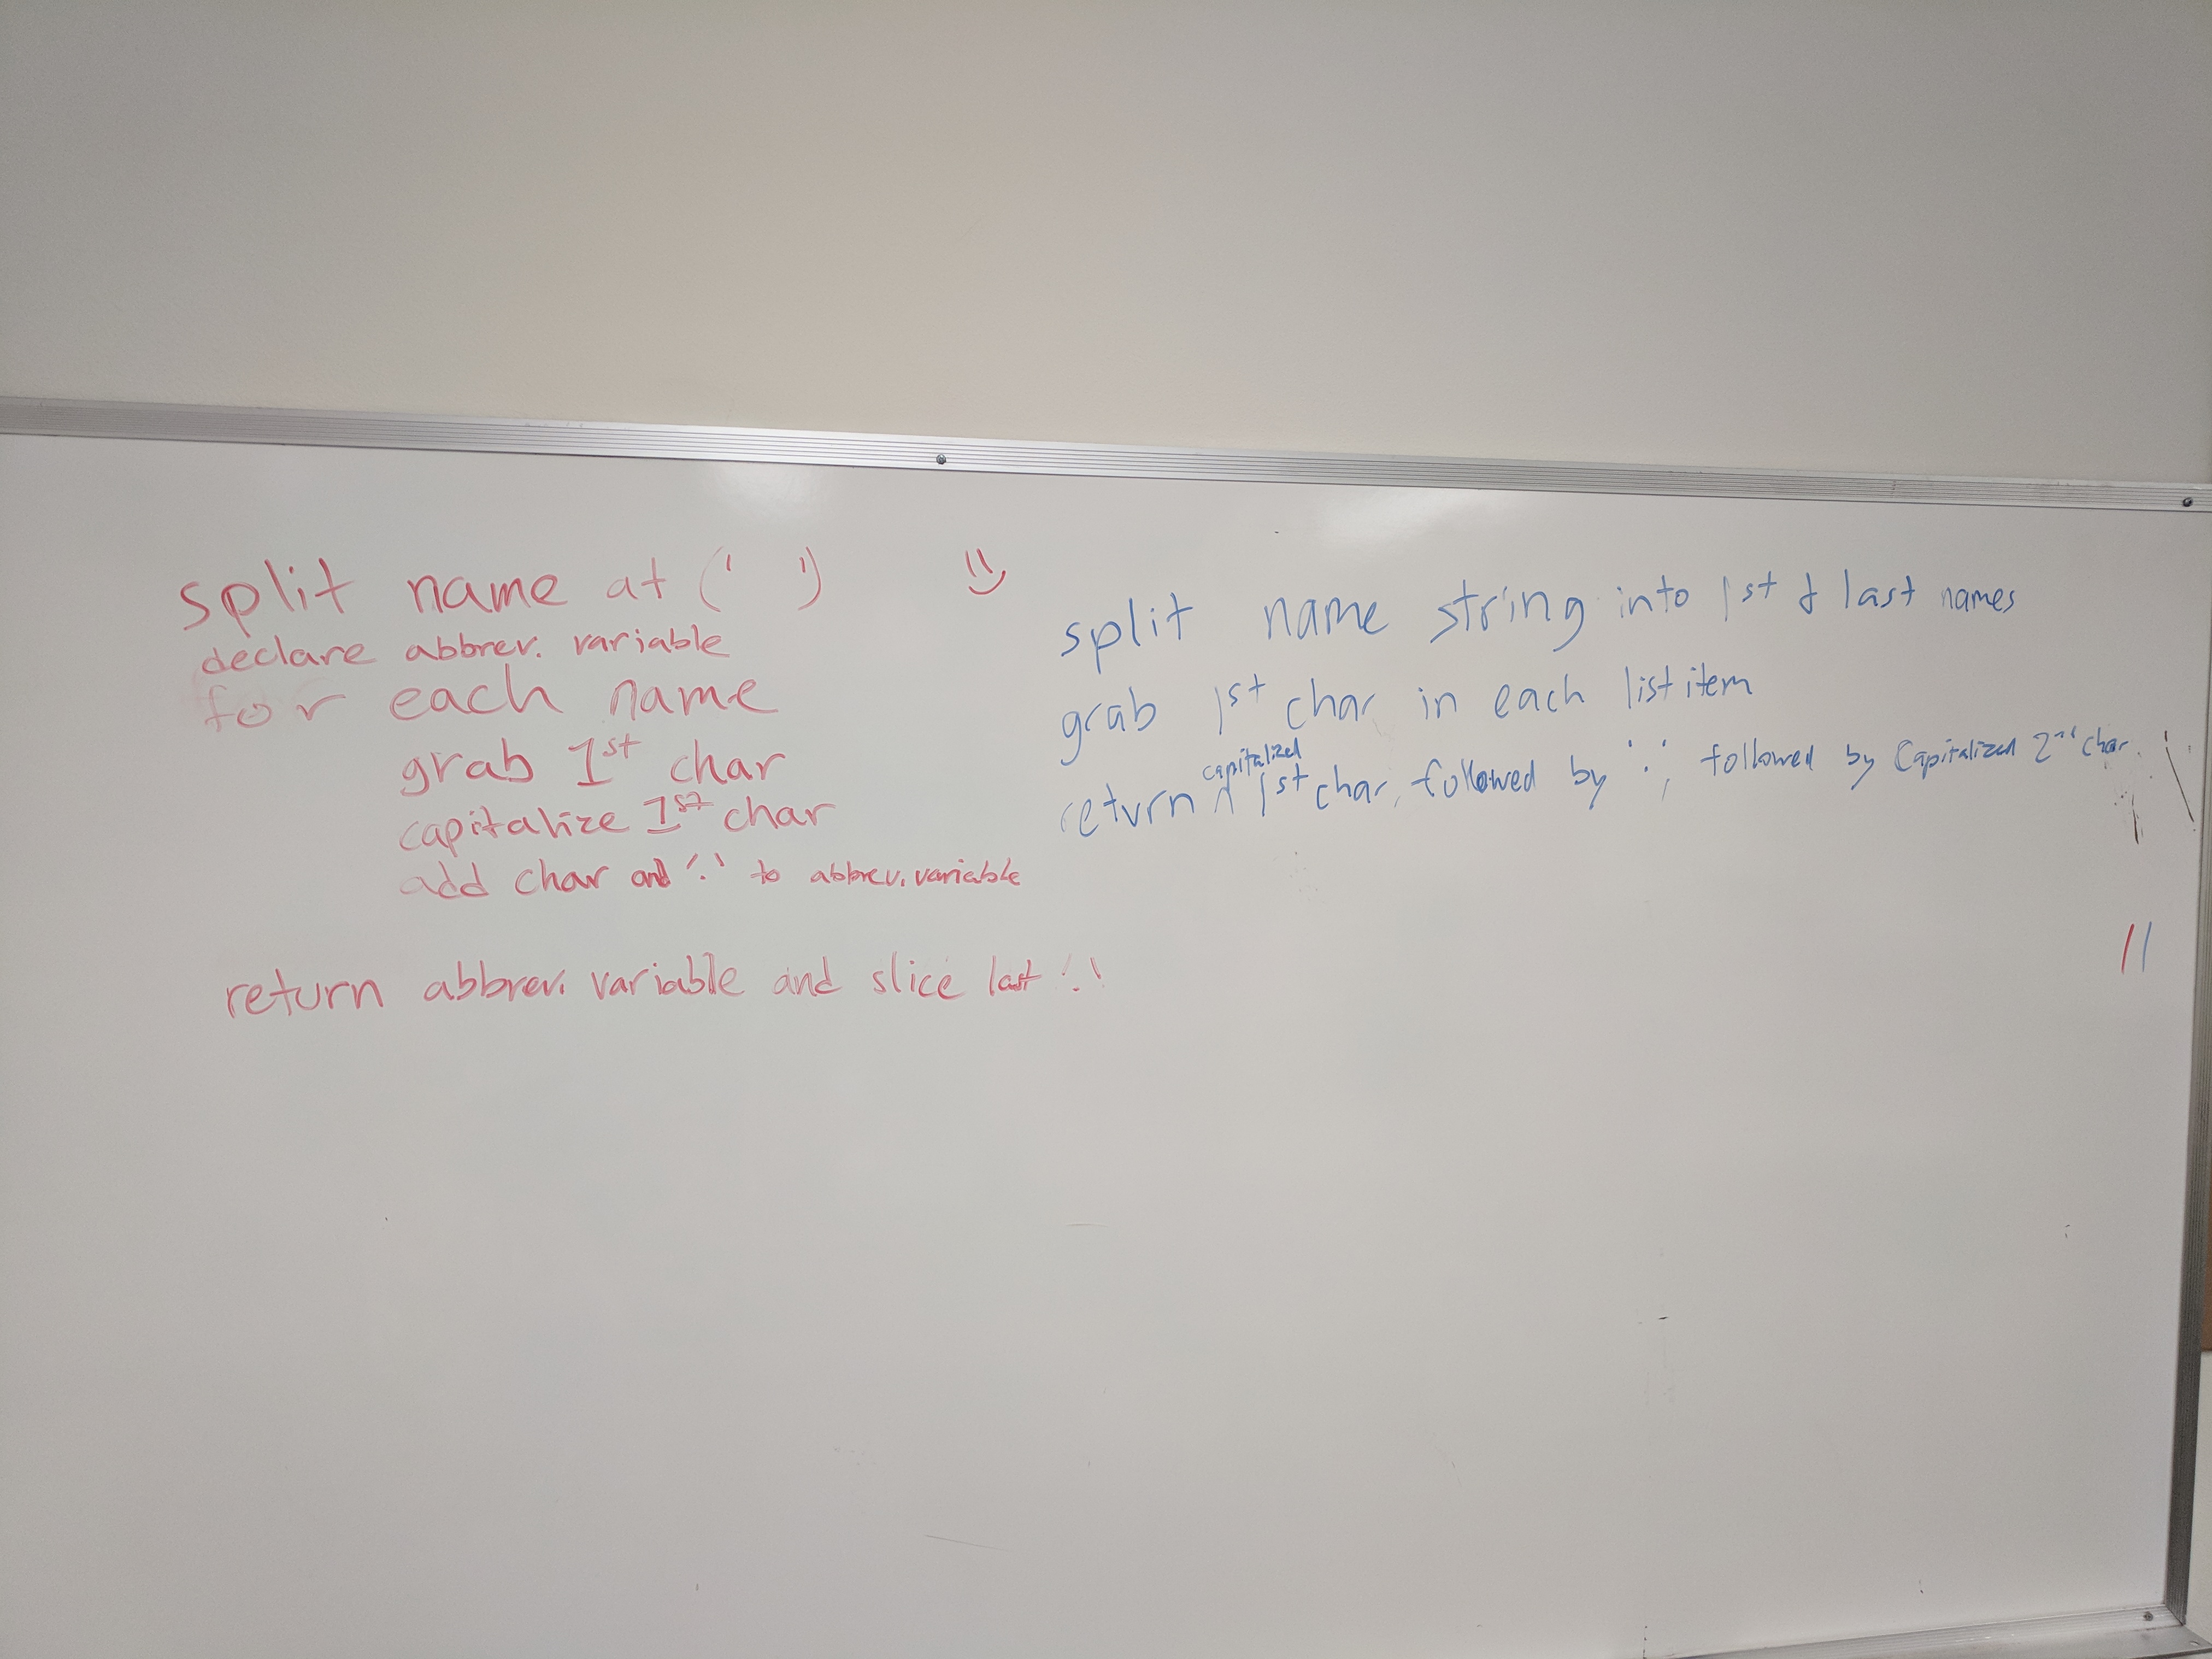 split name at (' ')
declare abbrev. variable
for each name
grab 1st char
capitalize 1st char
add char and '.' to abbrev. variable
return abbrev. variable and slice last '.'
split name string into 1st & last names
grab 1st char in each list item
capitalized
return ^ 1st char, followed by '.', followed by Capitalized 2nd char.